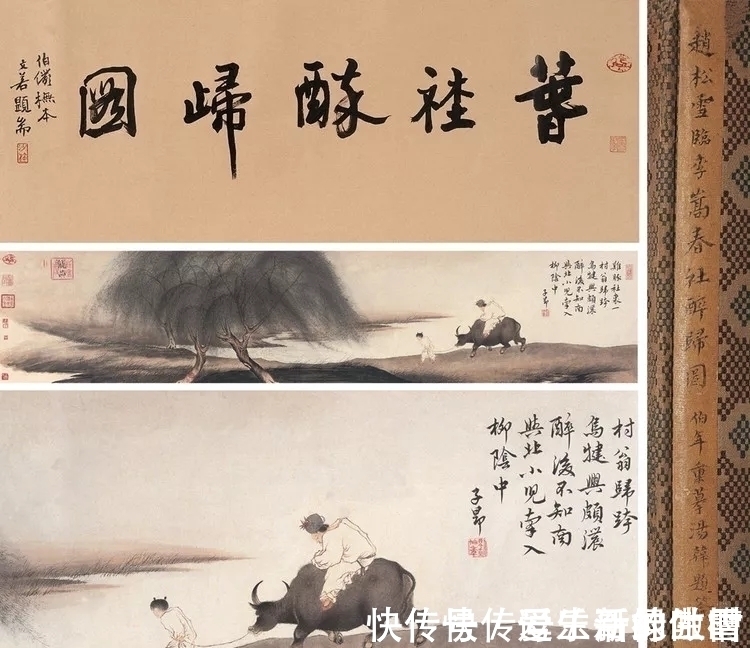 萅社醉歸圖
伯儼橅本
題耑
雞豚社
村翁歸跨
烏犍興頗濃
醉後不知南
與北小兒牽入
柳陰中
子昂
村翁歸跨
烏犍興頗濃
醉後不知南
與北小兒牽入
柳陰中
子昂
趙松雪臨李嵩春社醉歸圖 伯年重摹湯韓題
快传